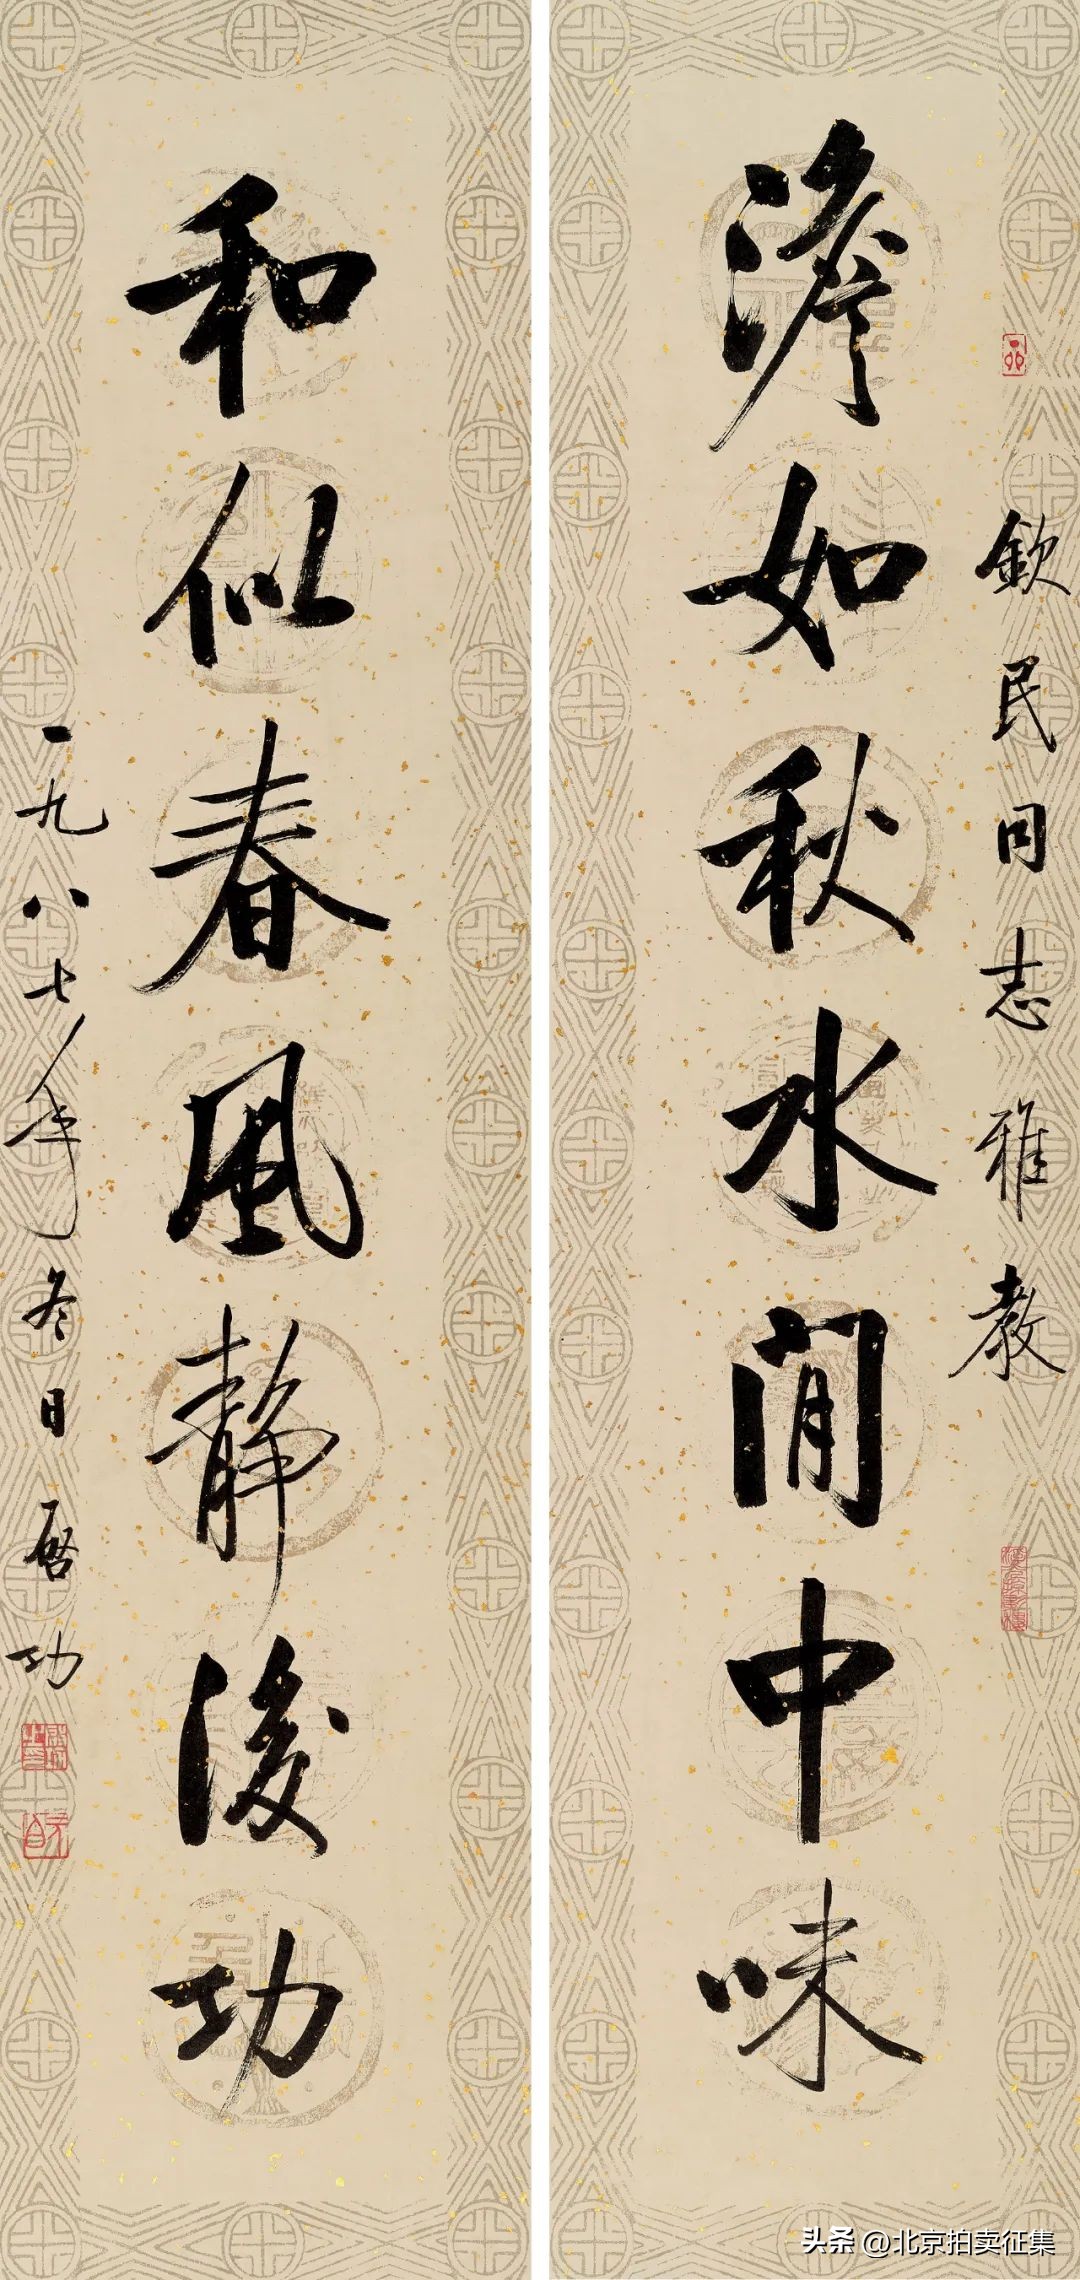 欽民同志雅教
澹如秋水閒中味
和似春風靜後功
一九八七年冬日启功
头条 @北京拍卖征集